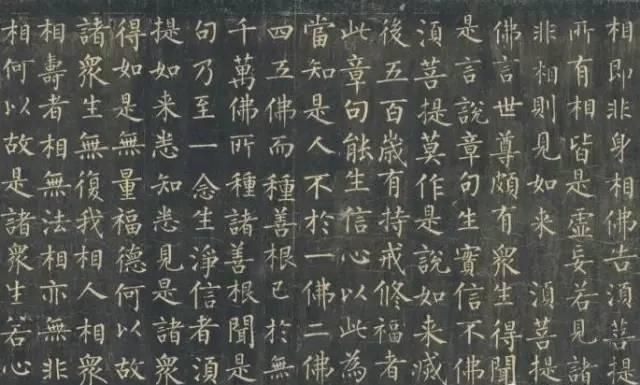 相即非身相佛告須菩提
所有相皆是虛妄若見諸
非相則見如来 須菩提
佛言世尊頗有衆生得聞
是言說章句生實信不佛
須菩提莫作是說如来滅
後五百歳有持戒修福者
此章句能生信心以此為
當知是人不於一佛二佛
四五佛而種善根已於無
千萬佛所種諸善根聞是
句乃至一念生淨信者須
提如来悉知悉見是諸衆
得如是無量福德何以故
諸衆生無復我相人相衆
相壽者相無法相亦無非
相何以故是諸衆生若心